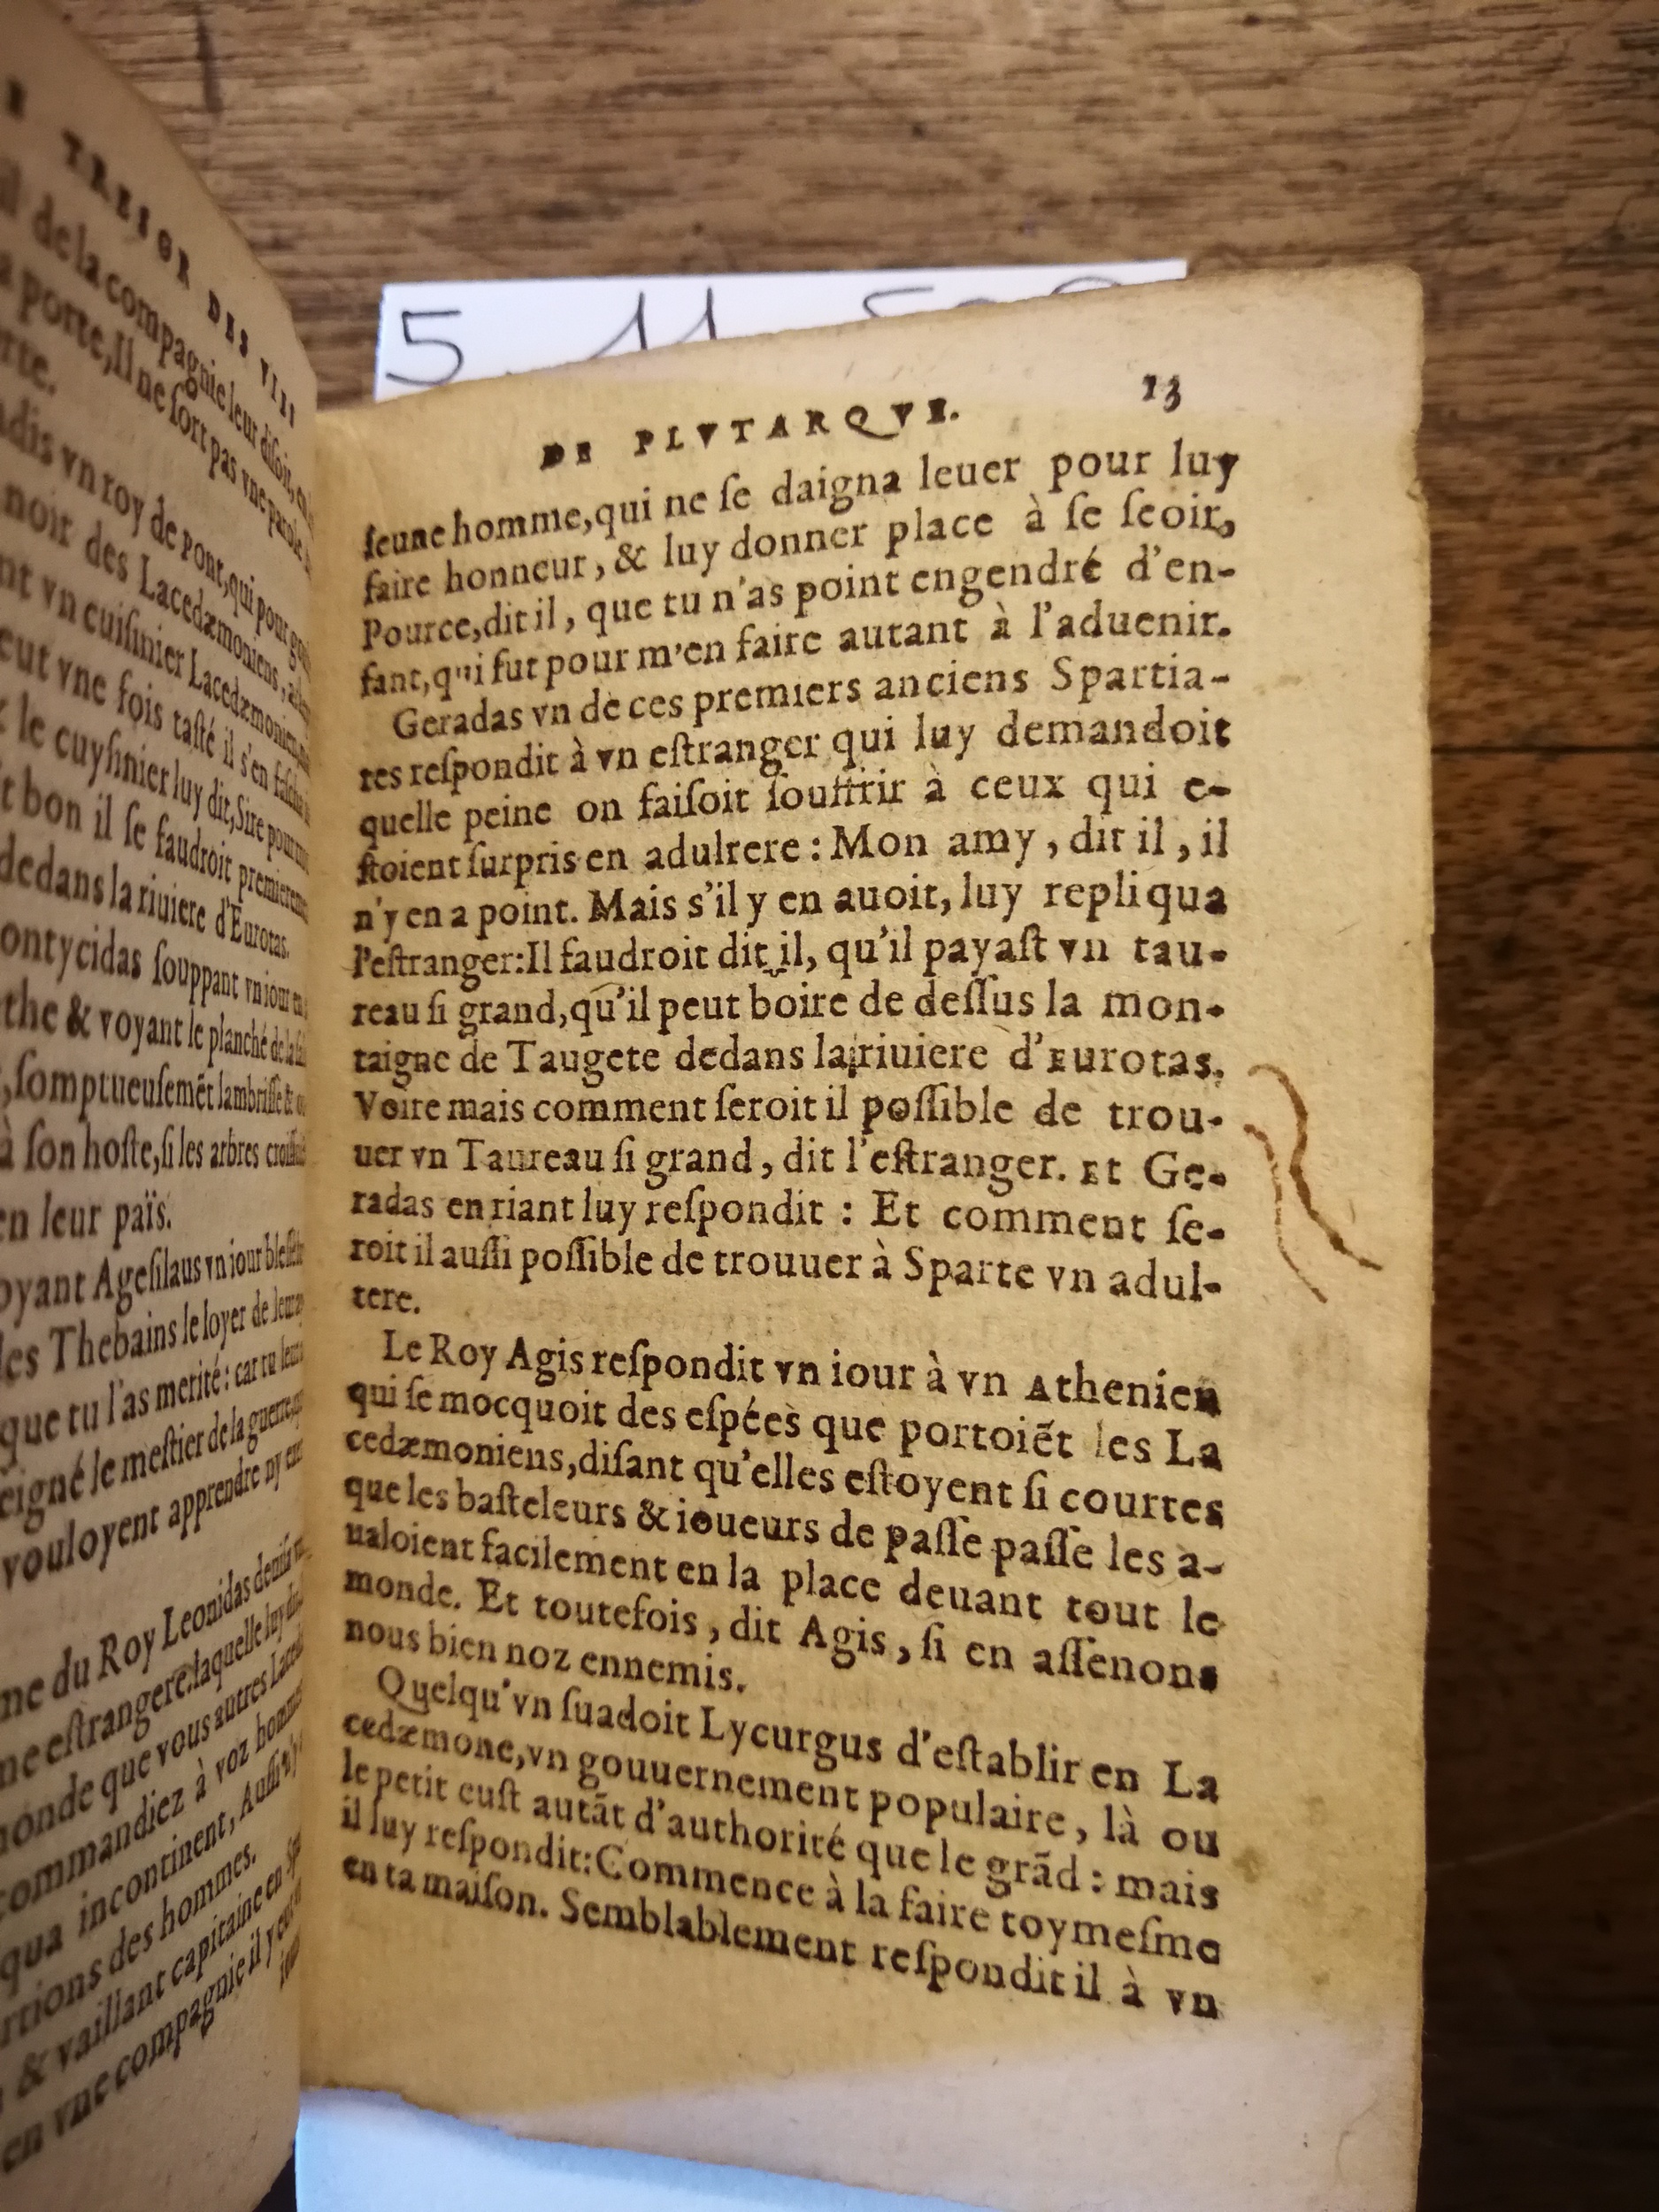 TRESOR DES VI
de la compagnie leur disoit, en
porte, Il ne sort pas vne parole
vn roy de pont, qui pour
des Lacedæmoniens,
vn cuisinier Lacedæmonien,
vne fois tasté il s'en
le cuysinier luy dit, Sire pour
bon il se faudroit
dedans la riuiere d'Eurotas.
souppant vn iour
& voyant le planché de la
somptueusemẽt lambrissé &
à son hoste, si les arbres
en leur païs.
Agesilaus vn iour
Thebains le loyer de
que tu l'as merité: car tu
le mestier de la guerre,
vouloyent apprendre ny
du Roy Leonidas
estrangere: laquelle luy
que vous autres
commandiez à voz
incontinent, Aussi
des hommes.
& vaillant capitaine en
en vne compagnie il y
5 11
DE PLVTARQVE.
13
ieune homme, qui ne ſe daigna leuer pour luy
faire honneur, & luy donner place à ſe ſeoir,
Pource, dit il, que tu n'as point engendré d'en-
fant, qui fut pour m'en faire autant à l'aduenir.
Geradas vn de ces premiers anciens Spartia-
tes reſpondit à vn eſtranger qui luy demandoit
quelle peine on faiſoit ſouffrir à ceux qui e-
ſtoient ſurpris en adulrere: Mon amy, dit il, il
n'y en a point. Mais s'il y en auoit, luy repliqua
l'eſtranger: Il faudroit dit il, qu'il payaſt vn tau-
reau ſi grand, qu'il peut boire de deſſus la mon-
taigne de Taugete dedans la riuiere d'Eurotas.
Voire mais comment ſeroit il poſſible de trou-
uer vn Taureau ſi grand, dit l'eſtranger. Et Ge-
radas en riant luy reſpondit: Et comment ſe-
roit il auſſi poſſible de trouuer à Sparte vn adul-
tere.
Le Roy Agis reſpondit vn iour à vn Athenien
qui ſe mocquoit des eſpées que portoiẽt les La
cedæmoniens, diſant qu'elles eſtoyent ſi courtes
que les baſteleurs & ioueurs de paſſe paſſe les a-
ualoient facilement en la place deuant tout le
monde. Et toutefois, dit Agis, ſi en aſſenons
nous bien noz ennemis.
Quelqu'vn ſuadoit Lycurgus d'eſtablir en La
cedæmone, vn gouuernement populaire, là ou
le petit euſt autãt d'authorité que le grãd: mais
il luy reſpondit: Commence à la faire toymeſme
en ta maiſon. Semblablement reſpondit il à vn